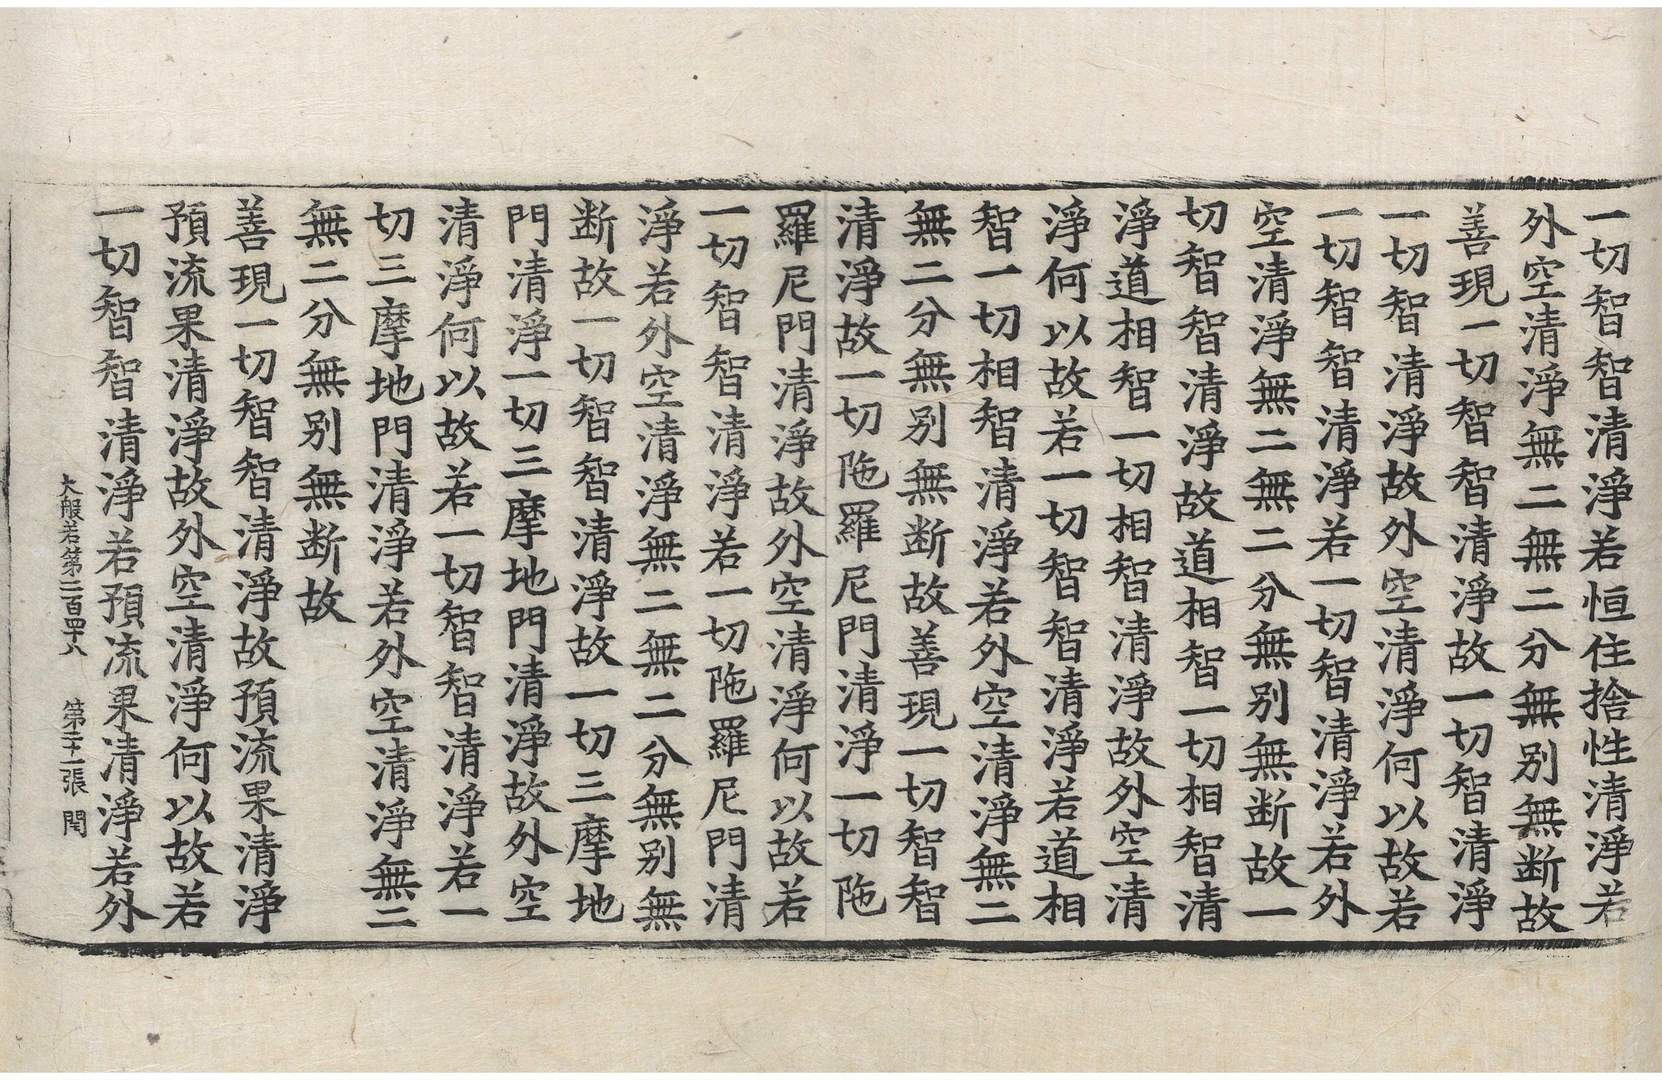 一切智智清淨若恒住捨性清淨若
外空清淨無二無二分無别無断故
善現一切智智清淨故一切智清淨
一切智清淨故外空清淨何以故若
一切智智清淨若一切智清淨若外
空清淨無二無二分無别無断故一
切智智清淨故道相智一切相智清
淨道相智一切相智清淨故外空清
淨何以故若一切智智清淨若道相
智一切相智清淨若外空清淨無二
無二分無别無断故善現一切智智
清淨故一切陁羅尼門清淨一切陁
羅尼門清淨故外空清淨何以故若
一切智智清淨若一切陁羅尼門清
淨若外空清淨無二無二分無别無
断故一切智智清淨故一切三摩地
門清淨一切三摩地門清淨故外空
清淨何以故若一切智智清淨若一
切三摩地門清淨若外空清淨無二
無二分無别無断故
善現一切智智清淨故預流果清淨
預流果清淨故外空清淨何以故若
一切智智清淨若預流果清淨若外
大般若第二百四十八 第二十一張 閏